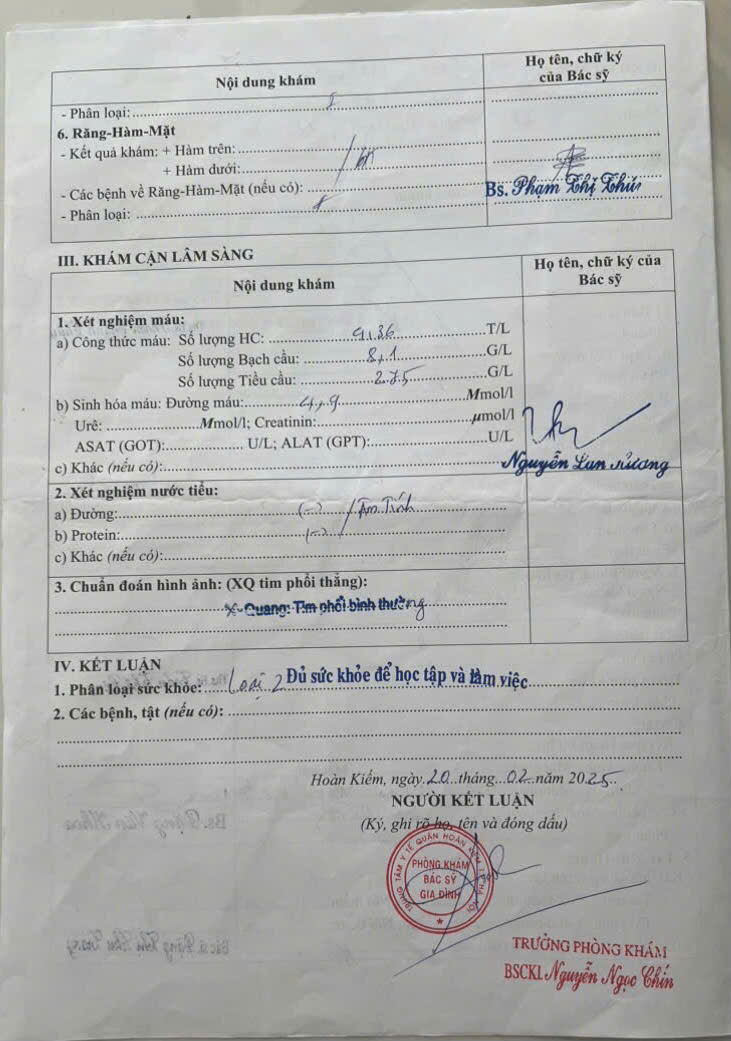 Nội dung khám
Họ tên, chữ ký
của Bác sỹ
- Phân loại: I
6. Răng-Hàm-Mặt
- Kết quả khám: + Hàm trên:
+ Hàm dưới:
- Các bệnh về Răng-Hàm-Mặt (nếu có):
- Phân loại: I
Bs. Phạm Thị Thúy
III. KHÁM CẬN LÂM SÀNG
Nội dung khám
Họ tên, chữ ký của
Bác sỹ
1. Xét nghiệm máu:
a) Công thức máu: Số lượng HC: 4,36 T/L
Số lượng Bạch cầu: 8,1 G/L
Số lượng Tiểu cầu: 275 G/L
b) Sinh hóa máu: Đường máu: 4,9 Mmol/l
Urê: Mmol/l; Creatinin: µmol/l
ASAT (GOT): U/L; ALAT (GPT): U/L
c) Khác (nếu có):
Nguyễn
2. Xét nghiệm nước tiểu:
a) Đường: (-) Âm Tính
b) Protein: (-)
c) Khác (nếu có):
3. Chuẩn đoán hình ảnh: (XQ tim phổi thẳng):
X- Quang: Tim phổi bình thường
IV. KẾT LUẬN
1. Phân loại sức khỏe: Loại 2 Đủ sức khỏe để học tập và làm việc
2. Các bệnh, tật (nếu có):
Hoàn Kiếm, ngày 20 tháng 02 năm 2025
NGƯỜI KẾT LUẬN
(Ký, ghi rõ họ, tên và đóng dấu)
TRUNG TÂM Y TẾ QUẬN HOÀN KIẾM T.P HÀ NỘI
PHÒNG KHÁM
BÁC SỸ
GIA ĐÌNH
TRƯỞNG PHÒNG KHÁM
BSCKI. Nguyễn Ngọc Chín